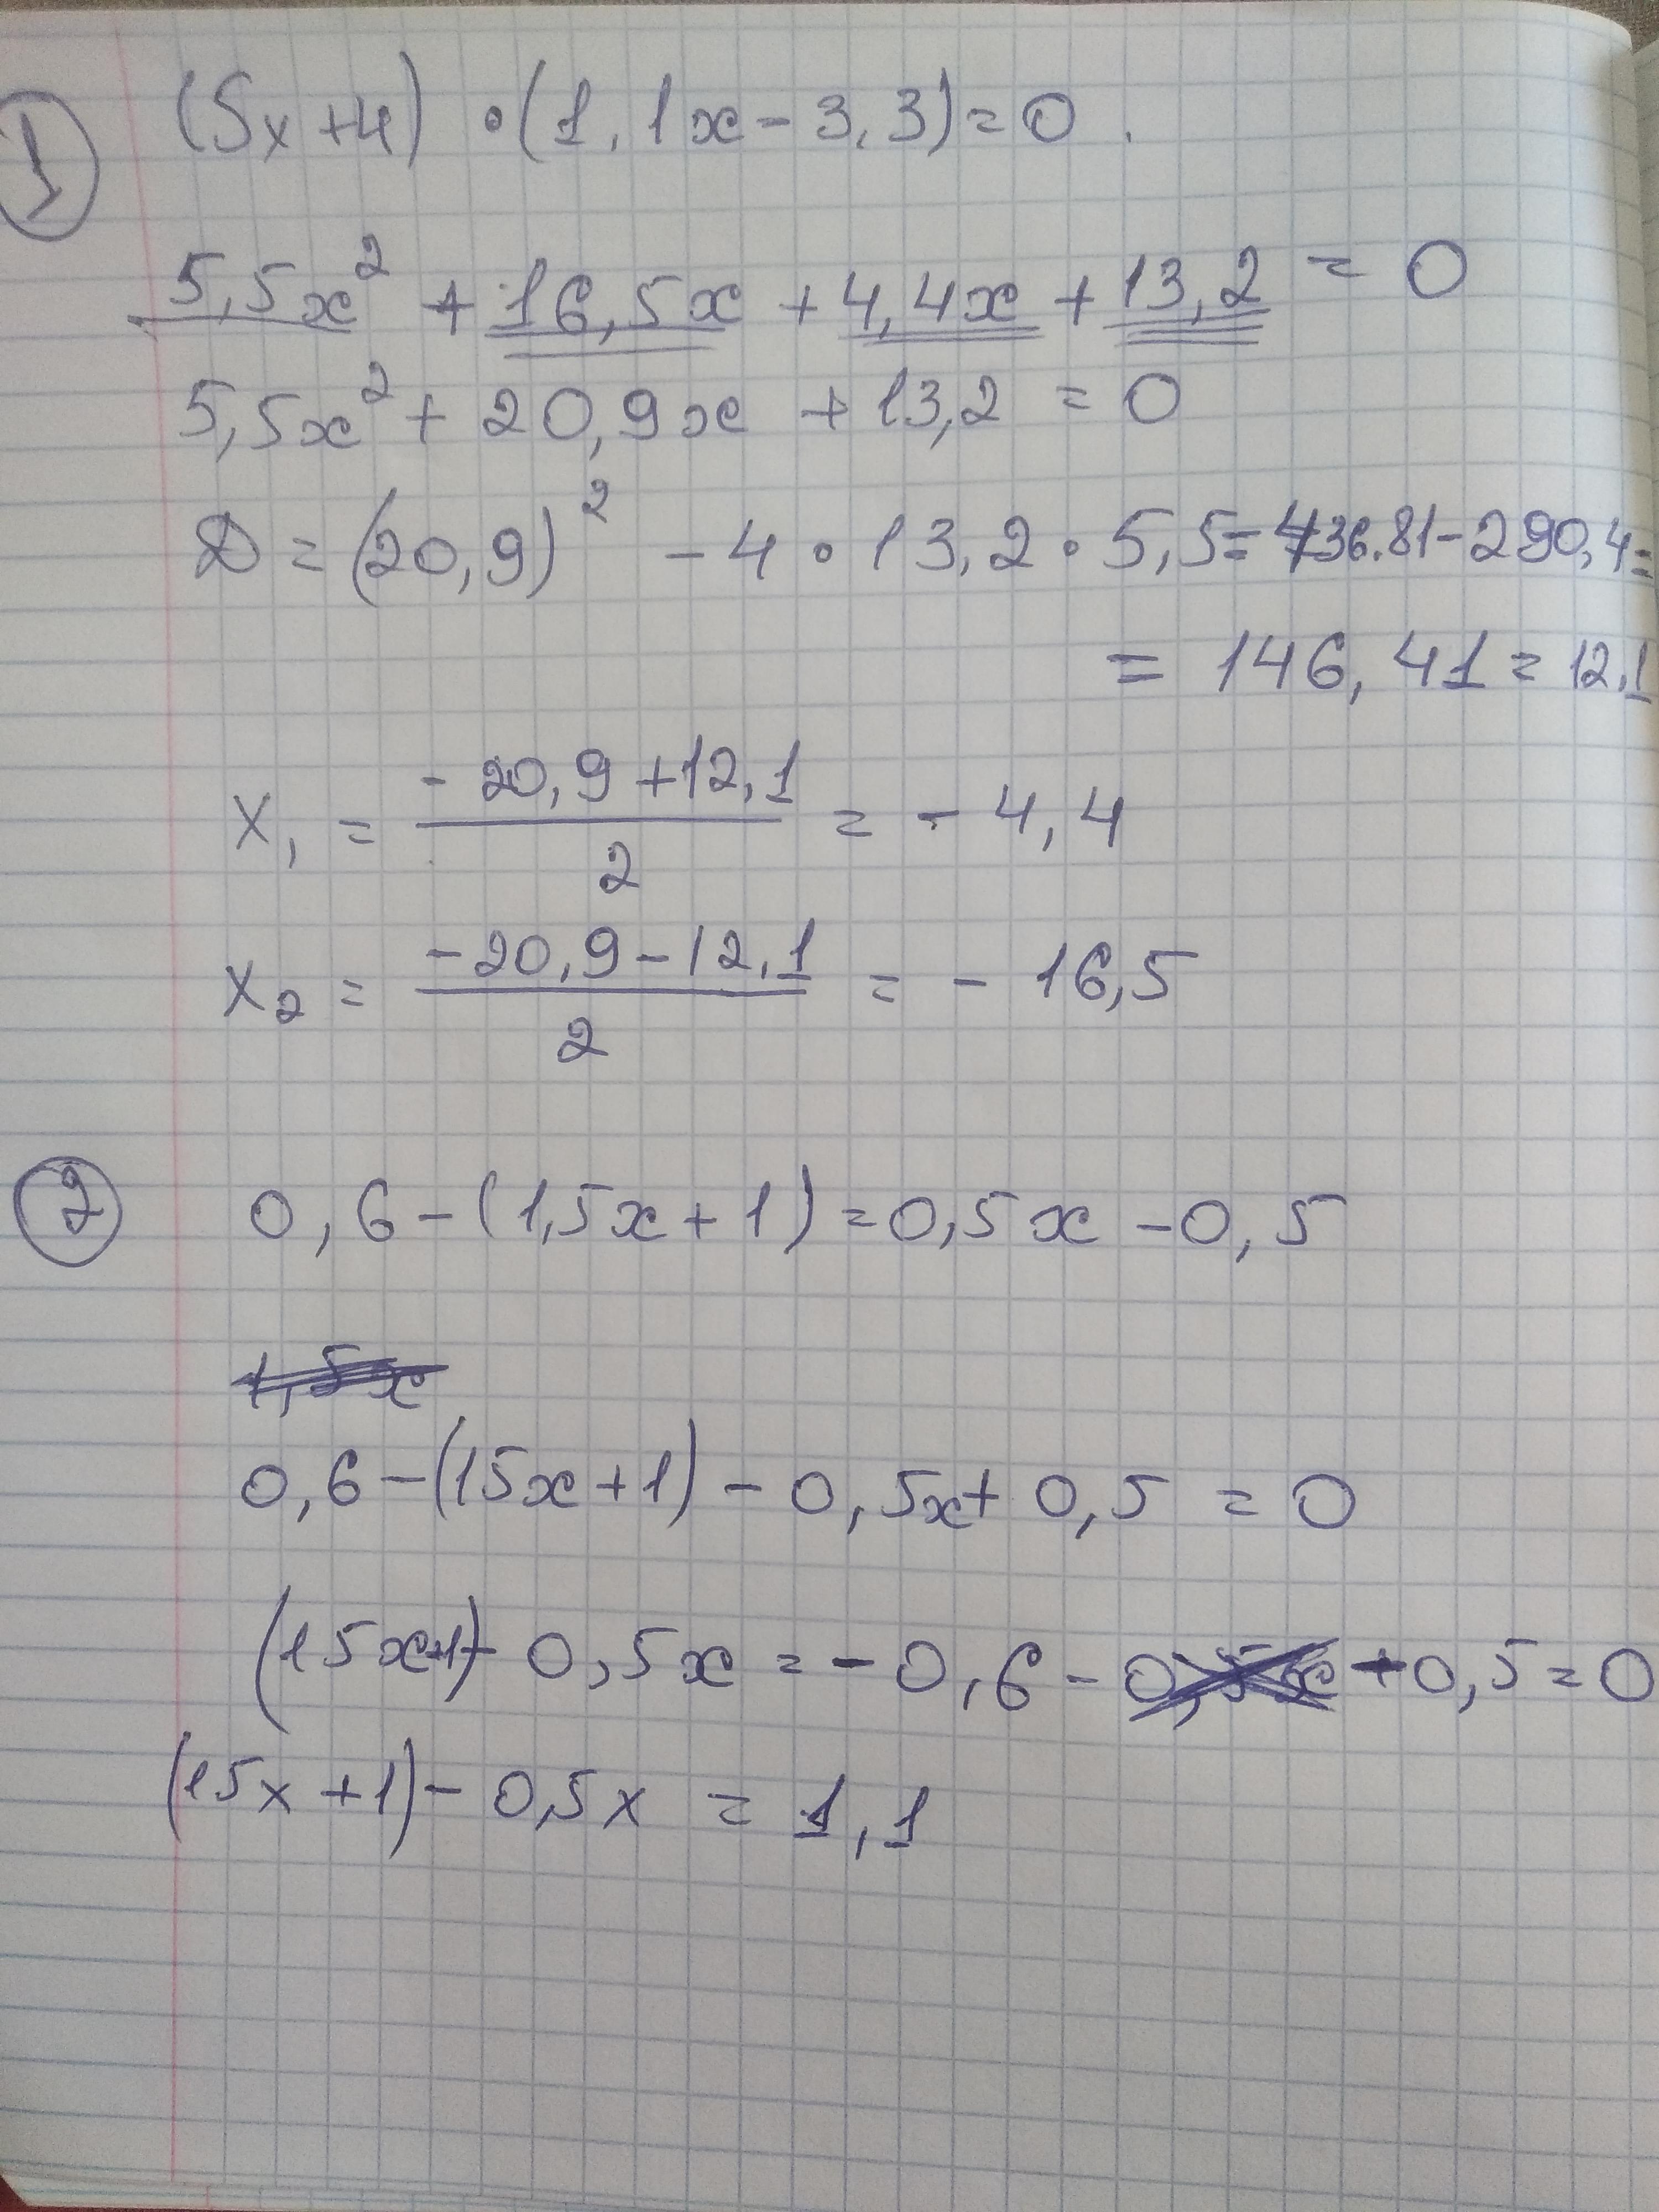 1 (5x+4) • (1,1x-3,3)=0.
5,5x² + 16,5x + 4,4x + 13,2 = 0
5,5x² + 20,9x + 13,2 = 0
D = (20,9)² - 4 • 13,2 • 5,5 = 436.81 - 290,4 =
= 146,41 = 12,1
x₁ = (-20,9 + 12,1)/2 = -4,4
x₂ = (-20,9 - 12,1)/2 = -16,5
2 0,6-(1,5x+1)=0,5x-0,5
1,5x
0,6-(15x+1)-0,5x+0,5=0
(15x+1)-0,5x=-0,6-0,5x+0,5=0
(15x+1)-0,5x=1,1